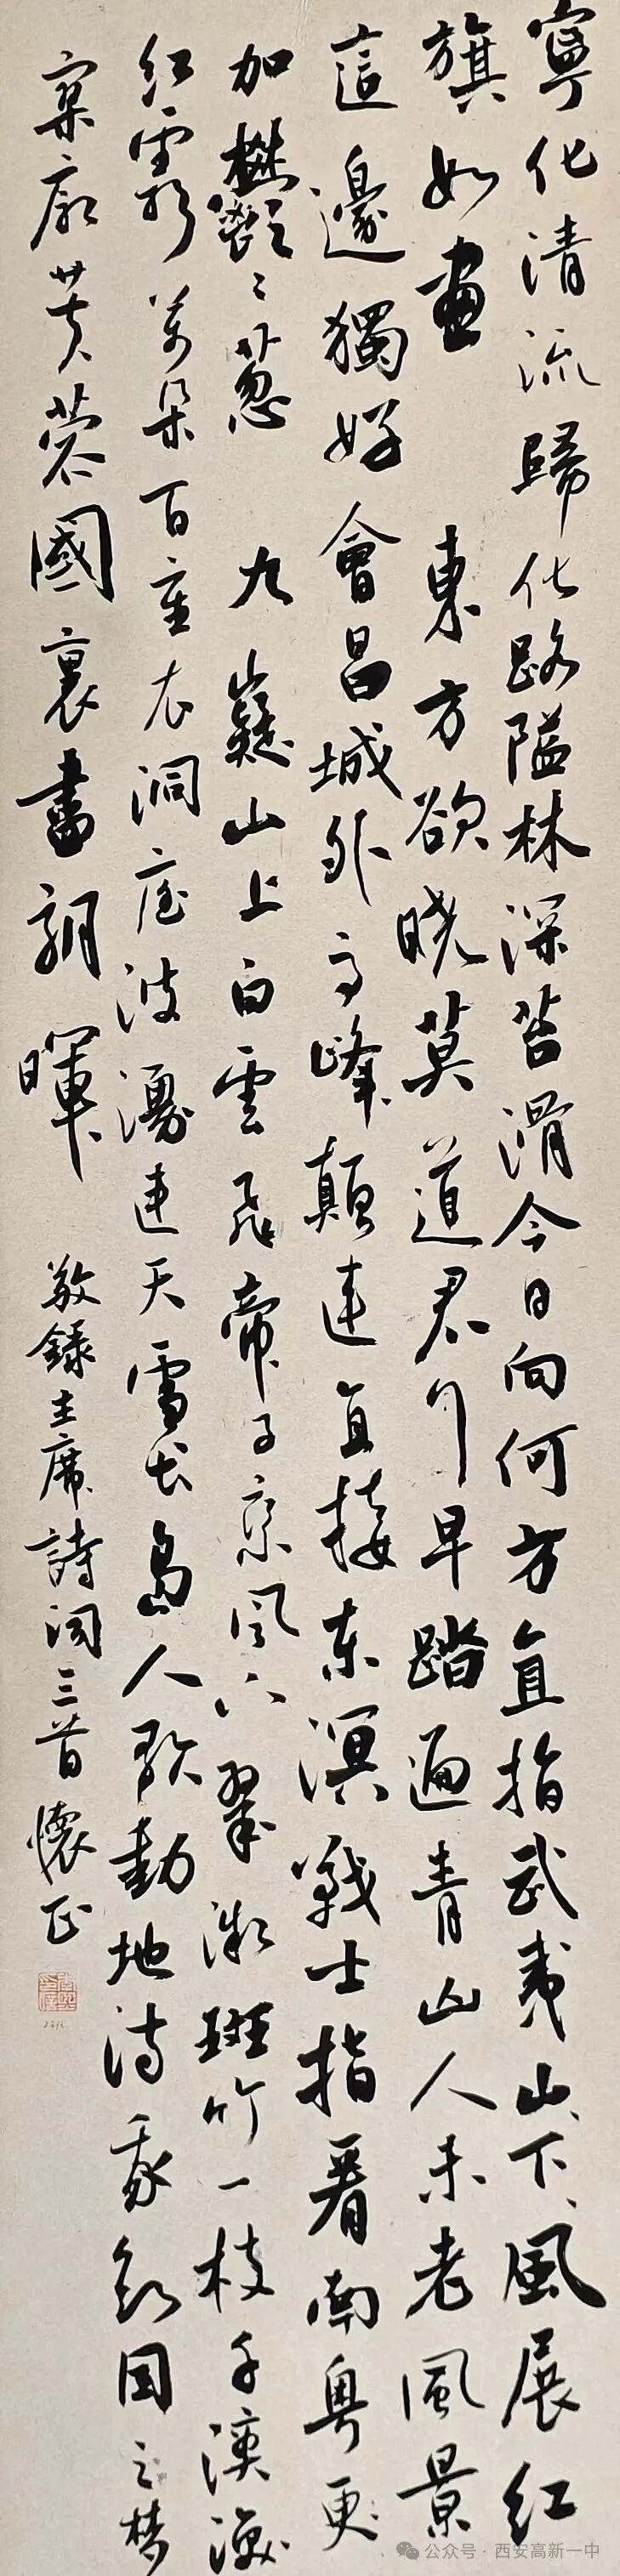 寧化清流歸化路隘林深苔滑今日向何方直指武夷山〻下〻風展紅
旗如畫 東方欲曉莫道君行早踏遍青山人未老風景
這邊獨好會昌城外高峰顛連直接東溟戰士指看南粵更
加鬱〻葱〻 九嶷山上白雲飛帝子乘風下翠微斑竹一枝千滴淚
紅霞萬朵百重衣洞庭波湧連天雪長島人歌動地詩我欲因之夢
寥廓芙蓉國裏盡朝暉 敬錄主席詩詞三首懷正
公众号·西安高新一中